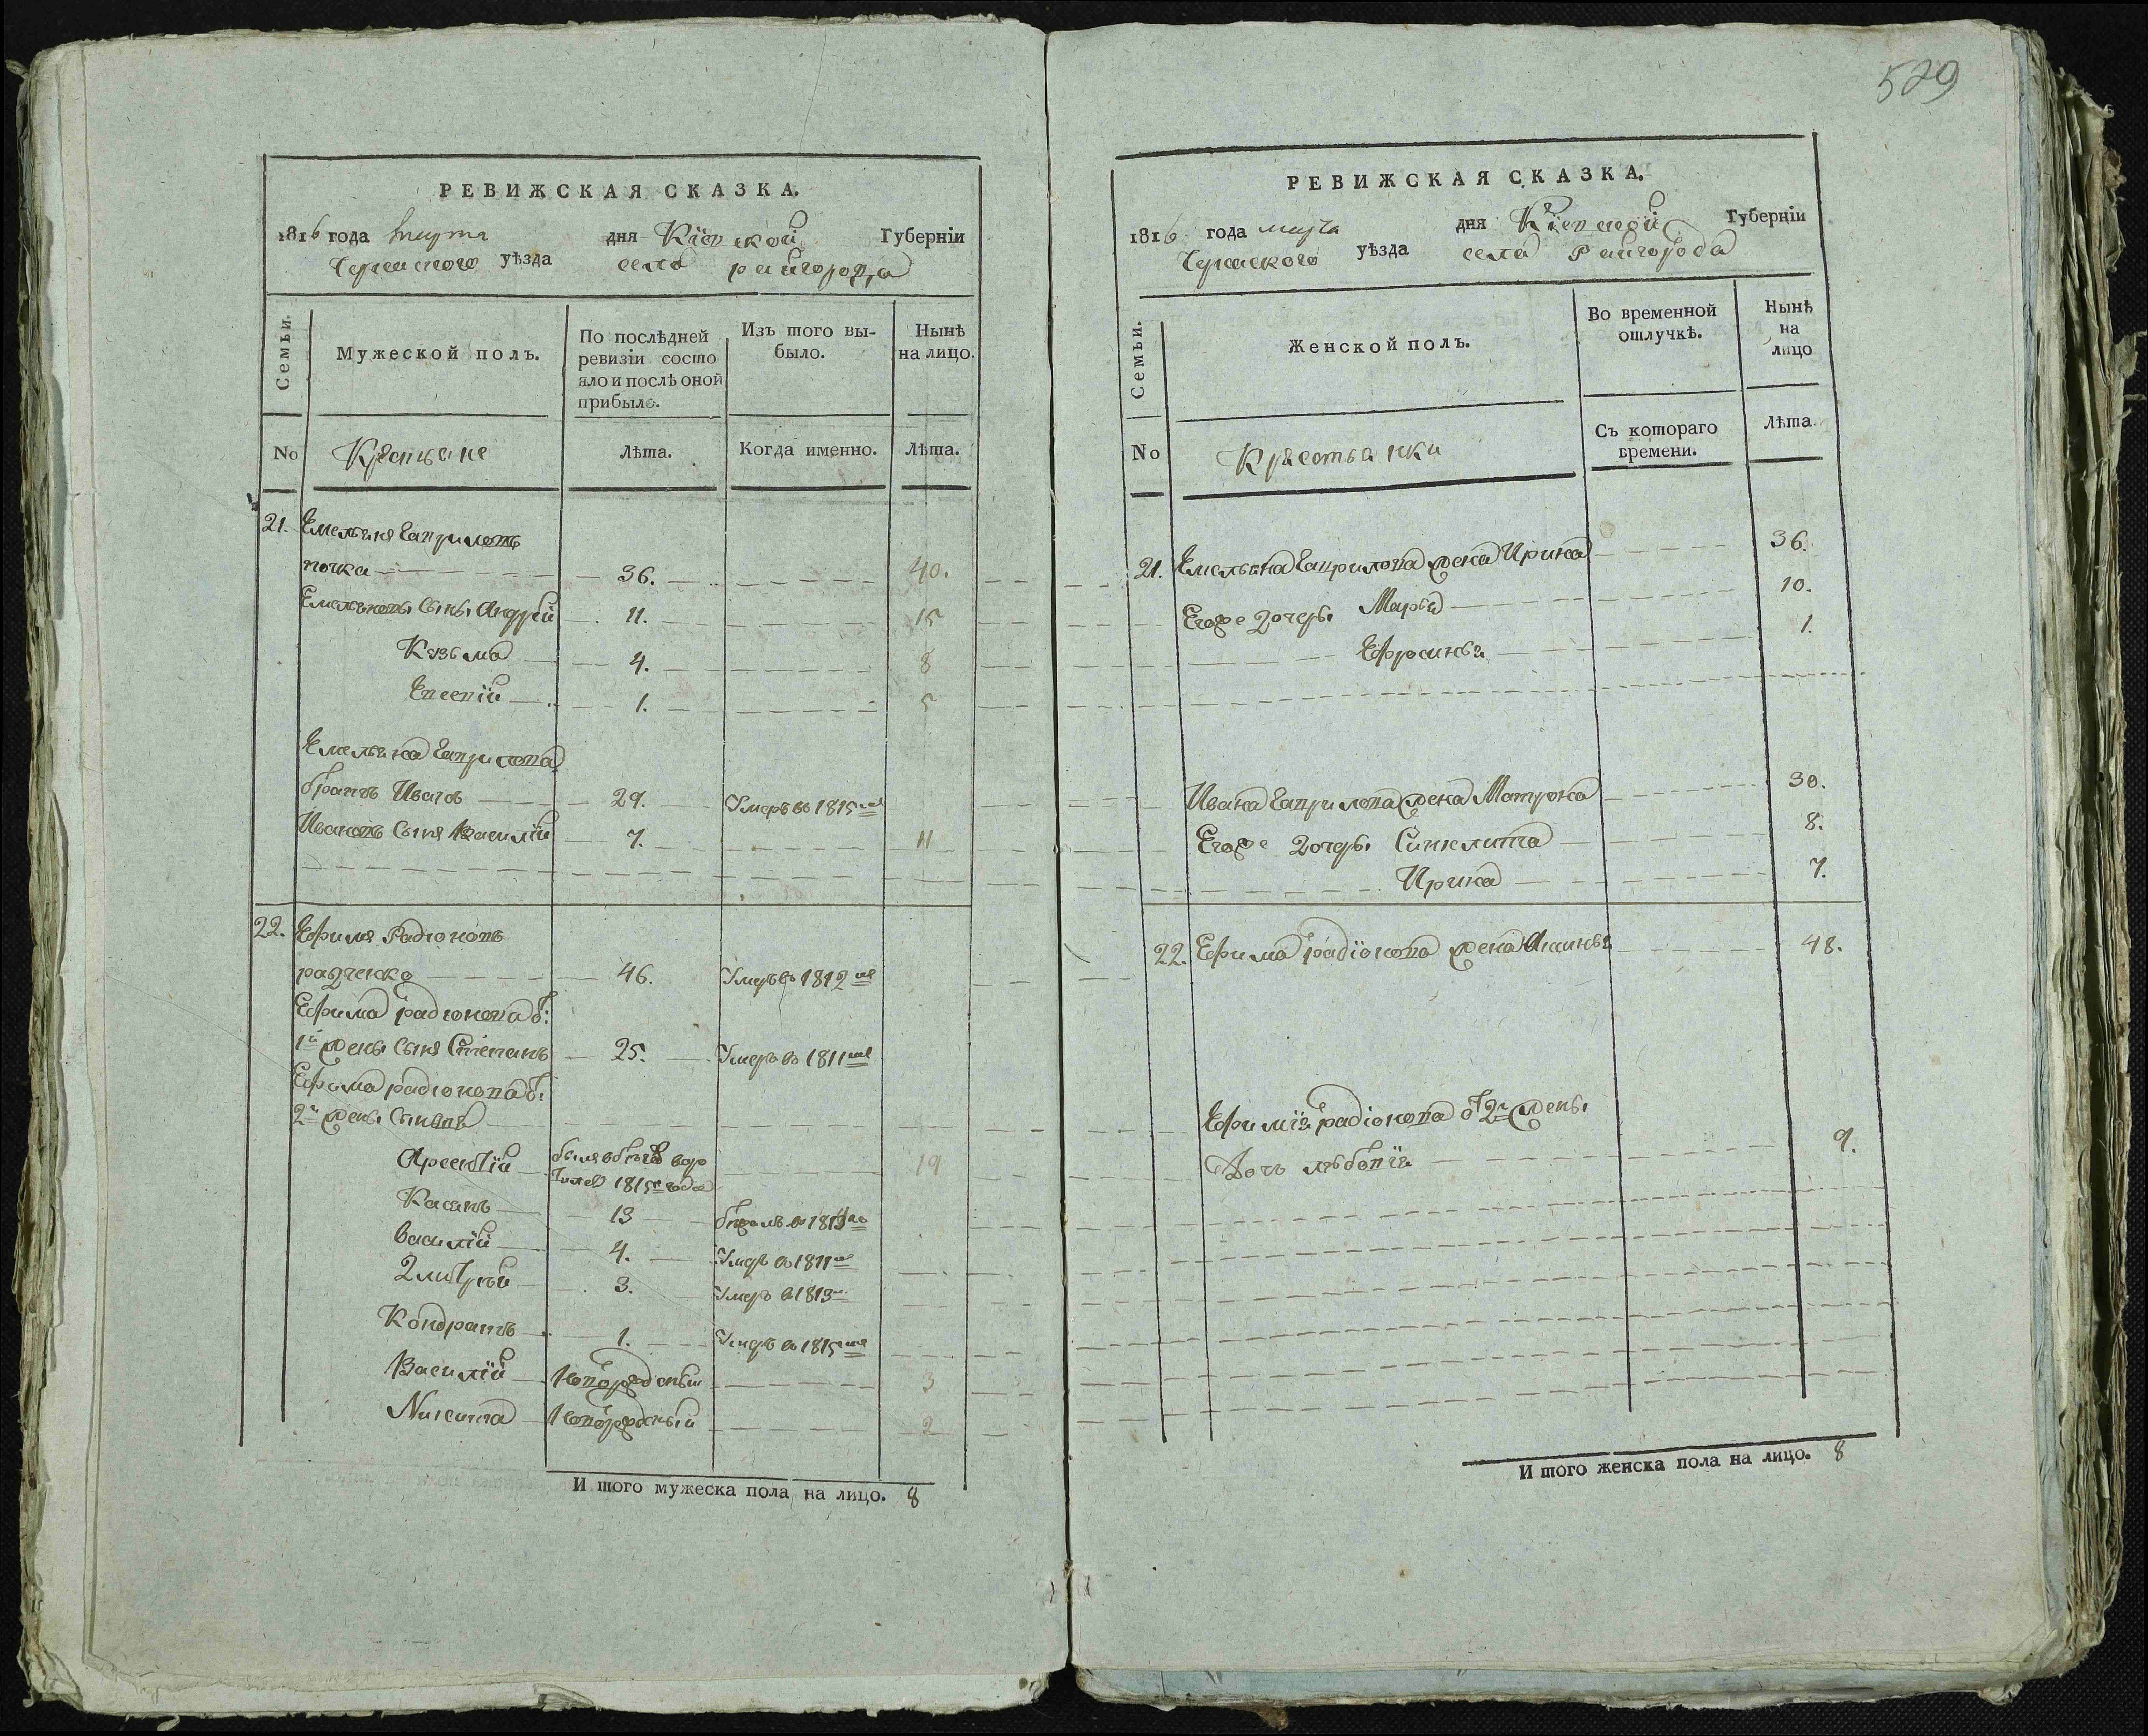 РЕВИЖСКАЯ СКАЗКА.
1816 года марта дня Кіевской Губерніи
Черкаского уѣзда села райгорода
Семьи.
Мужеской полъ.
По послѣдней ревизіи состо
яло и послѣ оной прибыло.
Изъ того вы-
было.
Нынѣ на лицо.
No
Крестьяне
Лѣта.
Когда именно.
Лѣта.
21. Емельянъ Гавриловъ
36. 40.
Емельяновъ Сынъ Андрей 11. 15
Кузьма 4. 8
Евсевїй 1. 5
Емельяна Гаврилова
братъ Иванъ 29. Умеръ въ 1815мъ
Ивановъ Сынъ Василїй 7. 11
22. Ефимъ Радіоновъ
радченко 46. Умеръ въ 1812мъ
Ефима радіонова от
1й жены Сынъ Степанъ 25. Умеръ въ 1811мъ
Ефима радіонова от
2й жены Сыновья
Арсентїй былъ в бегах 1815го года 19
Касянъ 13 бежалъ в
Василїй 4. Умеръ въ 1811мъ
Дмитрей 3. Умеръ в 1813м
Кондратъ 1. Умеръ въ 1815мъ
Василїй Новорожденный 3
Никита Новорожденный 2
И того мужеска пола на лицо. 8
529
РЕВИЖСКАЯ СКАЗКА.
1816 года марта дня Кїевской Губерніи
Черкаского уѣзда села Райгорода
Семьи.
Женской полъ.
Во временной
отлучкѣ.
Нынѣ
на
лицо
No
Крестьянки
Съ котораго
времени.
Лѣта.
21. Емельяна Гаврилова жена Ирина 36.
Егоже дочеры Марья 10.
Ефросинья 1.
Ивана Гаврилова жена Матрона 30.
Егоже дочеры Синклита 8.
Ирина 7.
22. Ефима радїонова жена 48.
Ефимїя радіонова от 2й жены
Дочь 9.
И того женска пола на лицо. 8